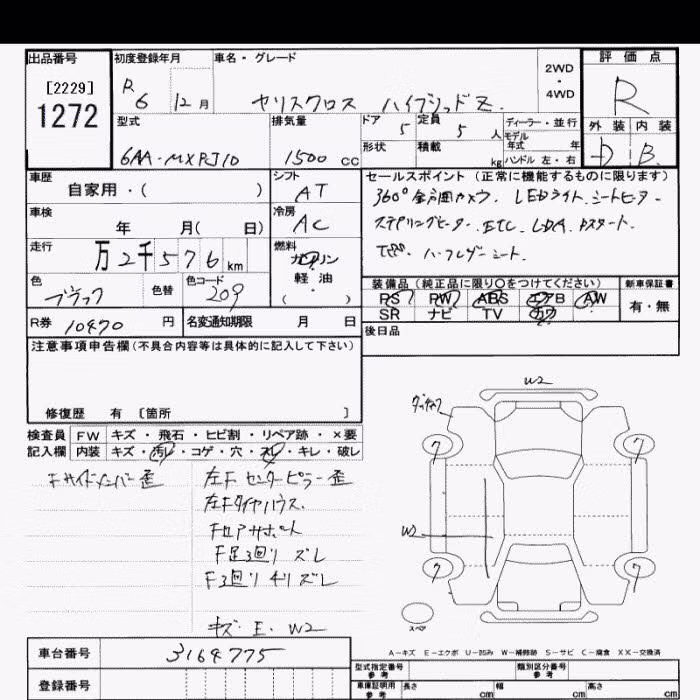 出品番号
[2229]
1272
初度登録年月
R 6 12月
車名・グレード
ヤリスクロス ハイブリッドZ
2WD
・
4WD
評価点
R
型式
6AA-MXPJ10
排気量
1500 cc
ドア 5
定員 5 人
ディーラー・並行
モデル
年式 年
形状
積載 kg
ハンドル 左・右
外装 内装
D B
車歴
自家用・( )
シフト
AT
車検
年 月( 日)
冷房
AC
走行
万2千576km
燃料
ガソリン
軽油
( )
色
ブラック
色替
色コード
209
R券 10470 円
名変通知期限 月 日
セールスポイント(正常に機能するものに限ります)
360°全周囲カメラ. LEDライト. シートヒーター
ステアリングヒーター. ETC. LDA. Pスタート.
ハーフレザーシート.
装備品(純正品に限り○をつけてください)
PS PW ABS エアB AW
SR ナビ TV カワ
新車保証書
有・無
後日品
注意事項申告欄(不具合内容等は具体的に記入して下さい)
修復歴 有 [箇所 ]
検査員 FW キズ・飛石・ヒビ割・リペア跡・×要
記入欄 内装 キズ・汚レ・コゲ・穴・スレ・キレ・破レ
Fサイドメンバー歪
左F センターピラー歪
左Fタイヤハウス.
Fロアサポート
F足廻り ズレ
F廻り チリズレ
キズ. E. W2
W2
W2
ワ
ワ
ワ
ワ
スペア
A−キズ E−エクボ U−凹み W−補修跡 S−サビ C−腐食 XX−交換済
車台番号 3164775
登録番号
型式指定番号
参考
類別区分番号
参考
車庫証明用
参考
長さ cm
幅 cm
高さ cm